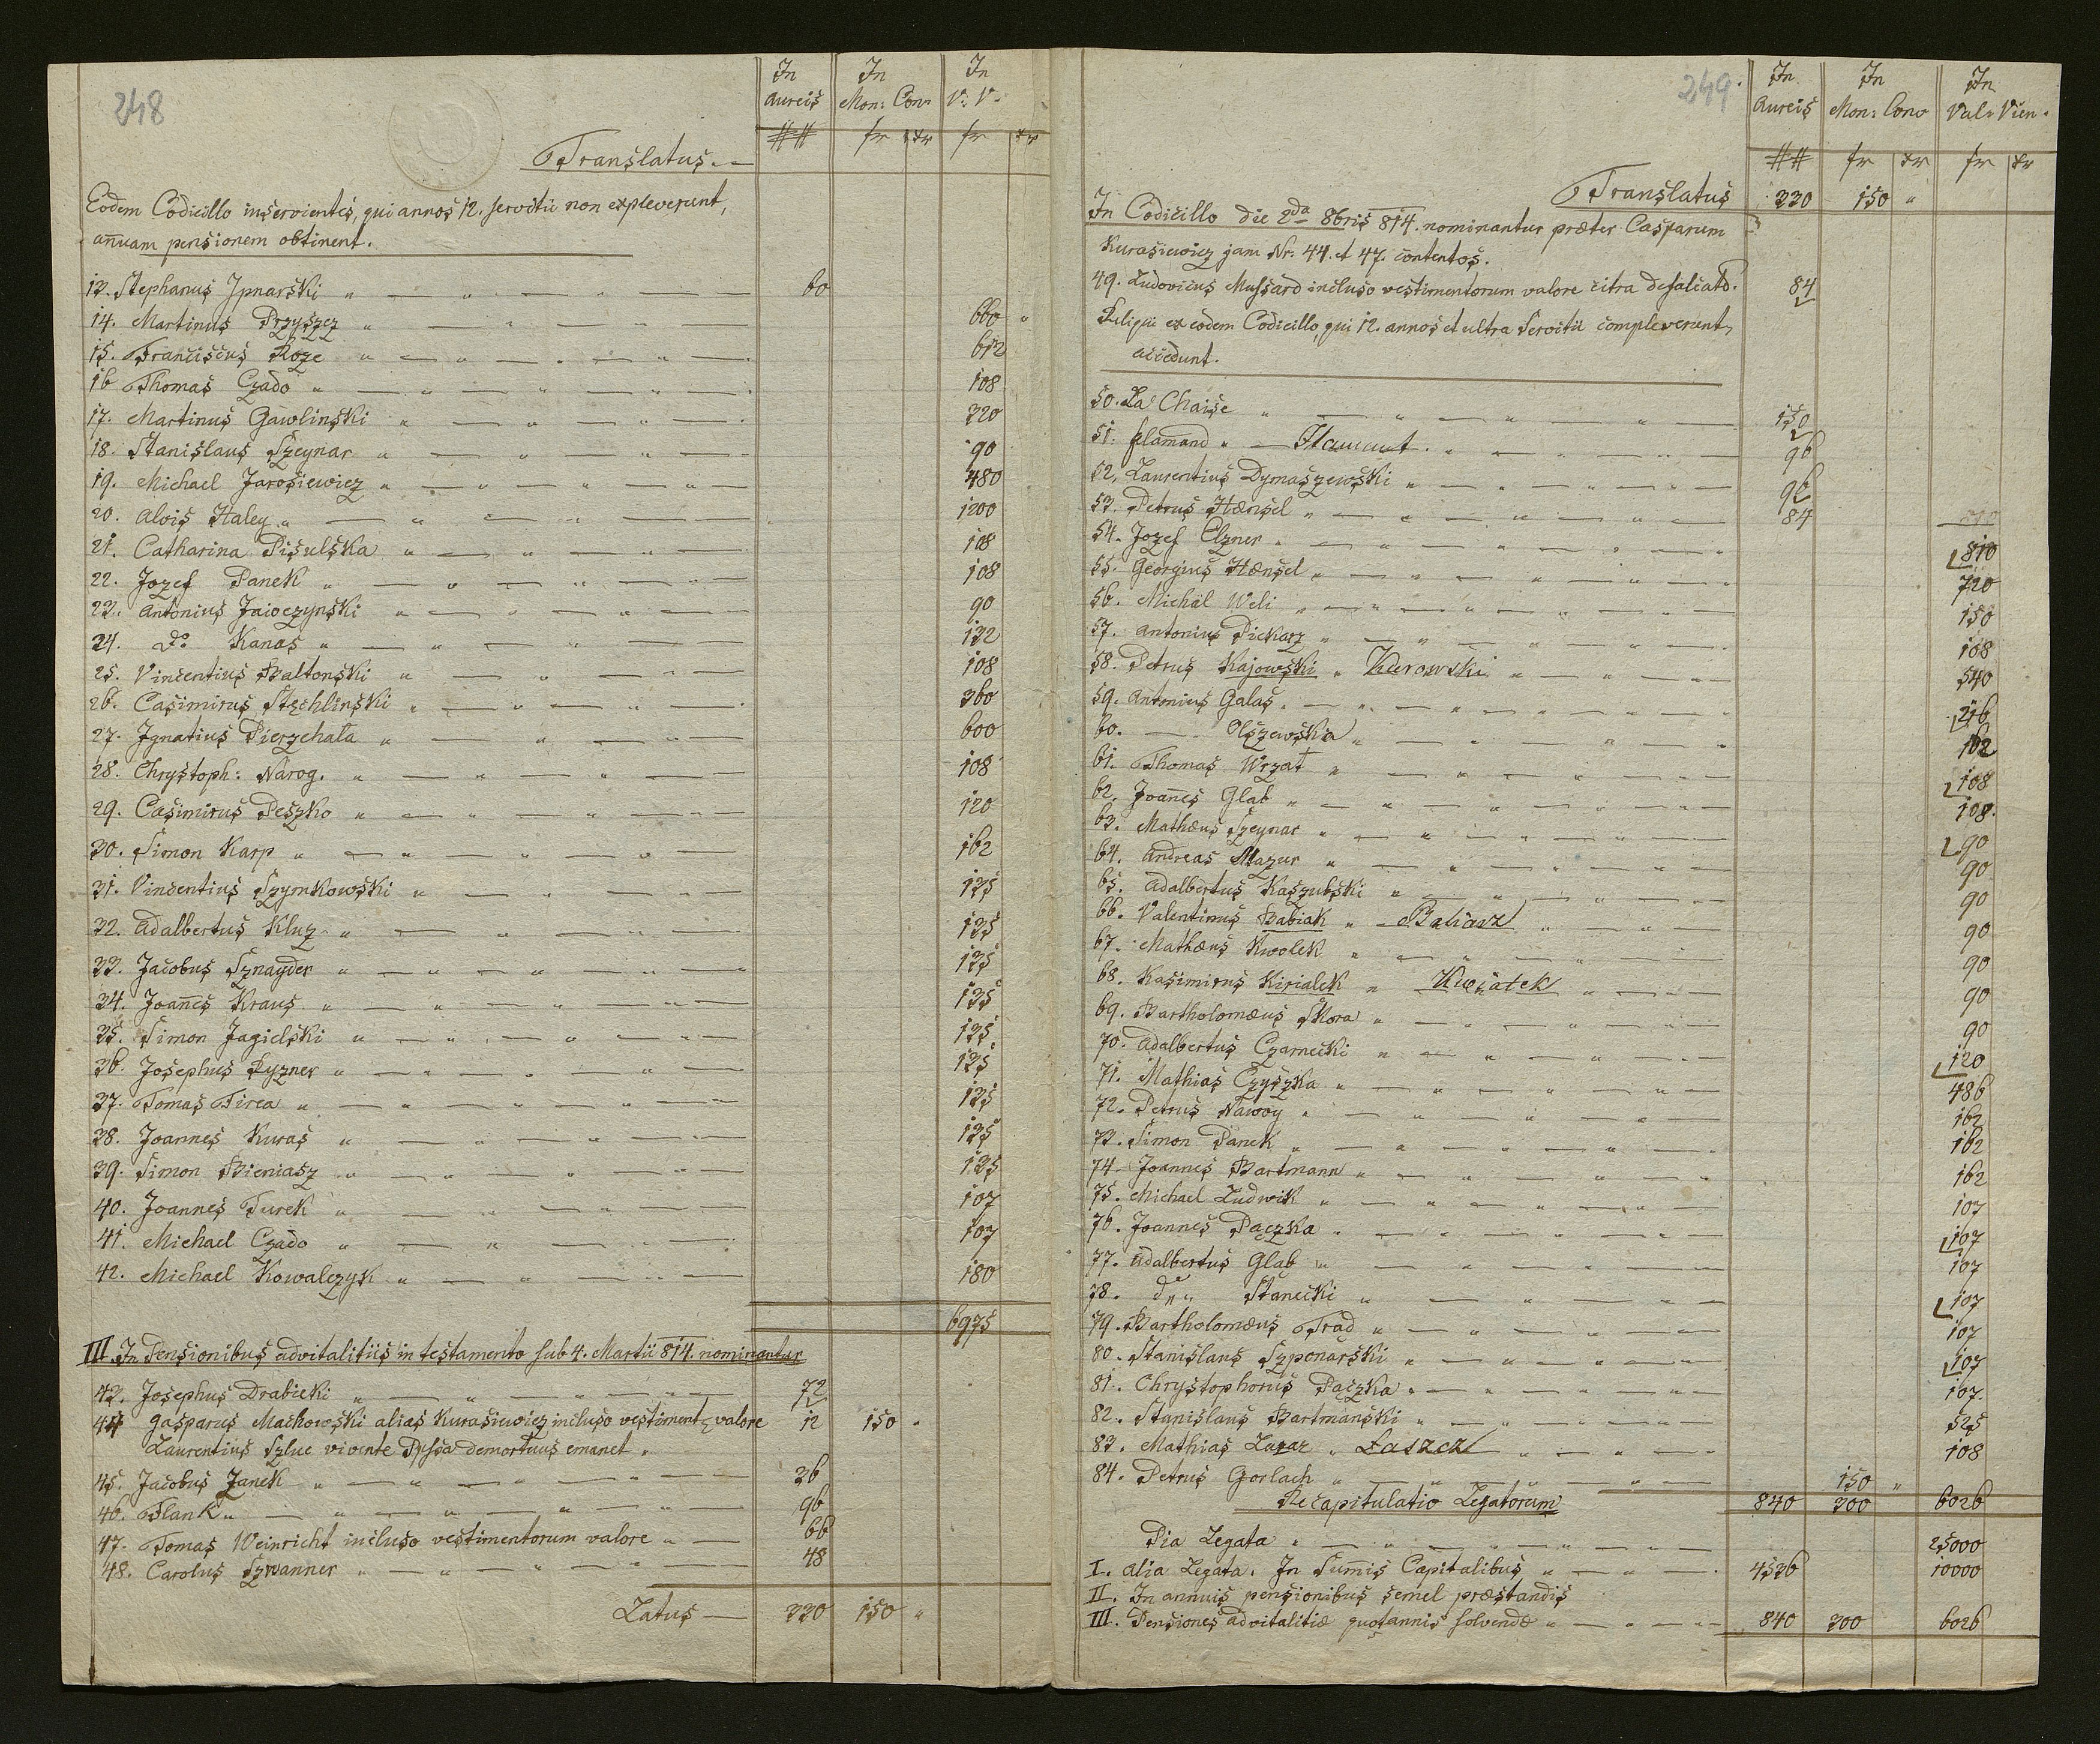 248
In Aureis | In Mon: Con: | In V: V.
## | fr | xr | fr | xr
Translatus.
Eodem Codicillo inservientes, qui annos 12. servitii non expleverunt,
annuam pensionem obtinent.
13. Stephanus Ipnarski 60
14. Martinus Przyszcz 660
15. Franciscus Roze 612
16 Thomas Czado 108
17. Martinus Gawlinski 320
18. Stanislaus Szeynar 90
19. Michael Jarosiewicz 480
20. Alois Haley 1200
21. Catharina Pisulska 108
22. Jozef Panek 108
23. Antonius Jaioczynski 90
24. do Kanas 132
25. Vincentius Baltonski 108
26. Casimirus Stechlinski 360
27. Ignatius Pierzchała 600
28. Chrystoph: Narog. 108
29. Casimirus Peszko 120
30. Simon Karp 162
31. Vincentius Szymkowski 135
32. Adalbertus Kluz 135
33. Jacobus Sznayder 135
34. Joannes Kraus 135
35. Simon Jagielski 135
36. Josephus Pyzner 135
37. Tomas Tirea 135
38. Joannes Kuras 135
39. Simon Bieniasz 135
40. Joannes Turek 107
41. Michael Czado 107
42. Michael Kowalczyk 180
6975
III. In Pensionibus advitalitiis in testamento sub 4. Martii 814. nominantur
43. Josephus Drabicki 72
44 Gasparus Machowski alias Kurasiewicz incluso vestiment: valore 12 150
Laurentius Szluc vivente demortuus emanet.
45. Jacobus Janek 36
46. Flank 96
47. Tomas Weinricht incluso vestimentorum valore 66
48. Carolus Szwanner 48
Latus 330 150
249.
In Aureis | In Mon: Conv | In Val: Vien.
## | fr | xr | fr | xr
Translatus 330 150
In Codicillo die 2da 8bris 814. nominantur præter Casparum
Kurasiewicz jam Nr. 44. et 47. contentos.
49. Ludovicus Mussard incluso vestimentorum valore citra 84
Reliqui ex eodem Codicillo, qui 12. annos et ultra Servitii compleverunt,
accedunt.
50. La Chaise 150
51. flamand Flamant. 96
52. Laurentius Dymaszewski 96
53. Petrus Hænsel 84
54. Jozef Elzner 810
55. Georgius Hænsel 720
56. Michäl Weli 150
57. Antonius Piekarz 108
58. Petrus Kajowski Kurowski 540
59. Antonius Galas 216
60. — Olszewska 162
61. Thomas Wrzat 108
62. Joannes Glab 108.
63. Mathæus Szeynar 90
64. Andreas Mazur 90
65. Adalbertus Kaszubski 90
66. Valentinus Babiak Baliasz 90
67. Mathæus Kwolek 90
68. Kasimirus Kirialek Kwiatek 90
69. Bartholomæus Skora 90
70. Adalbertus Czarnecki 120
71. Mathias Czyszka 486
72. Petrus Nawoy 162
73. Simon Panek 162
74 Joannes Bartmann 162
75. Michael Ludwik 107
76. Joannes Paczka 107
77. Adalbertus Glab 107
78. do Stanecki 107
79. Bartholomæus Trad 107
80. Stanislaus Szponarski 107
81. Chrystophorus Paczka 107
82. Stanislaus Bartmanski 525
83. Mathias Lazar Laszcz 108
84. Petrus Gorlach 150
Recapitulatio Legatorum 840 300 6026
Pia Legata 25000
I. Alia Legata. In Summis Capitalibus 4536 10000
II. In annuis pensionibus semel præstandis
III. Pensiones advitalitiæ quotannis solvendæ 840 300 6026